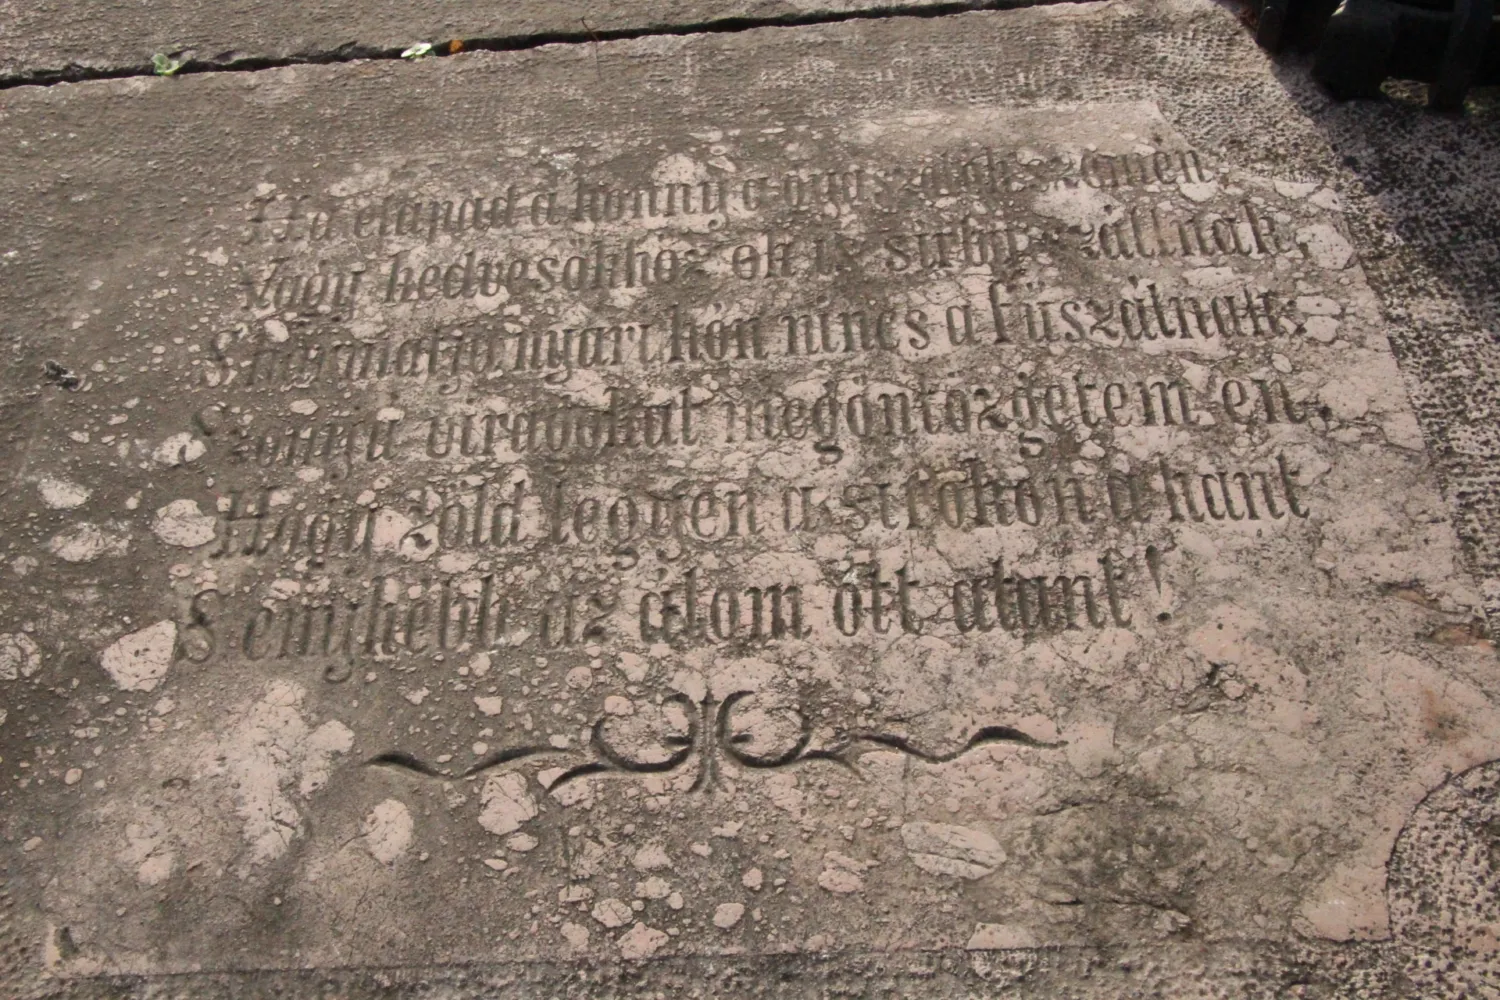 Ha elapad a könny a gyászolók szemén
Vagy hedvesökhöz ők is sirba szállnak
S harmatja nyári hőn nincs a fűszálnak
Szomjú virágokat megöntözgetem én
Hogy zöld legyen a sirokon a hant
S enyhébb az álom ött alant!